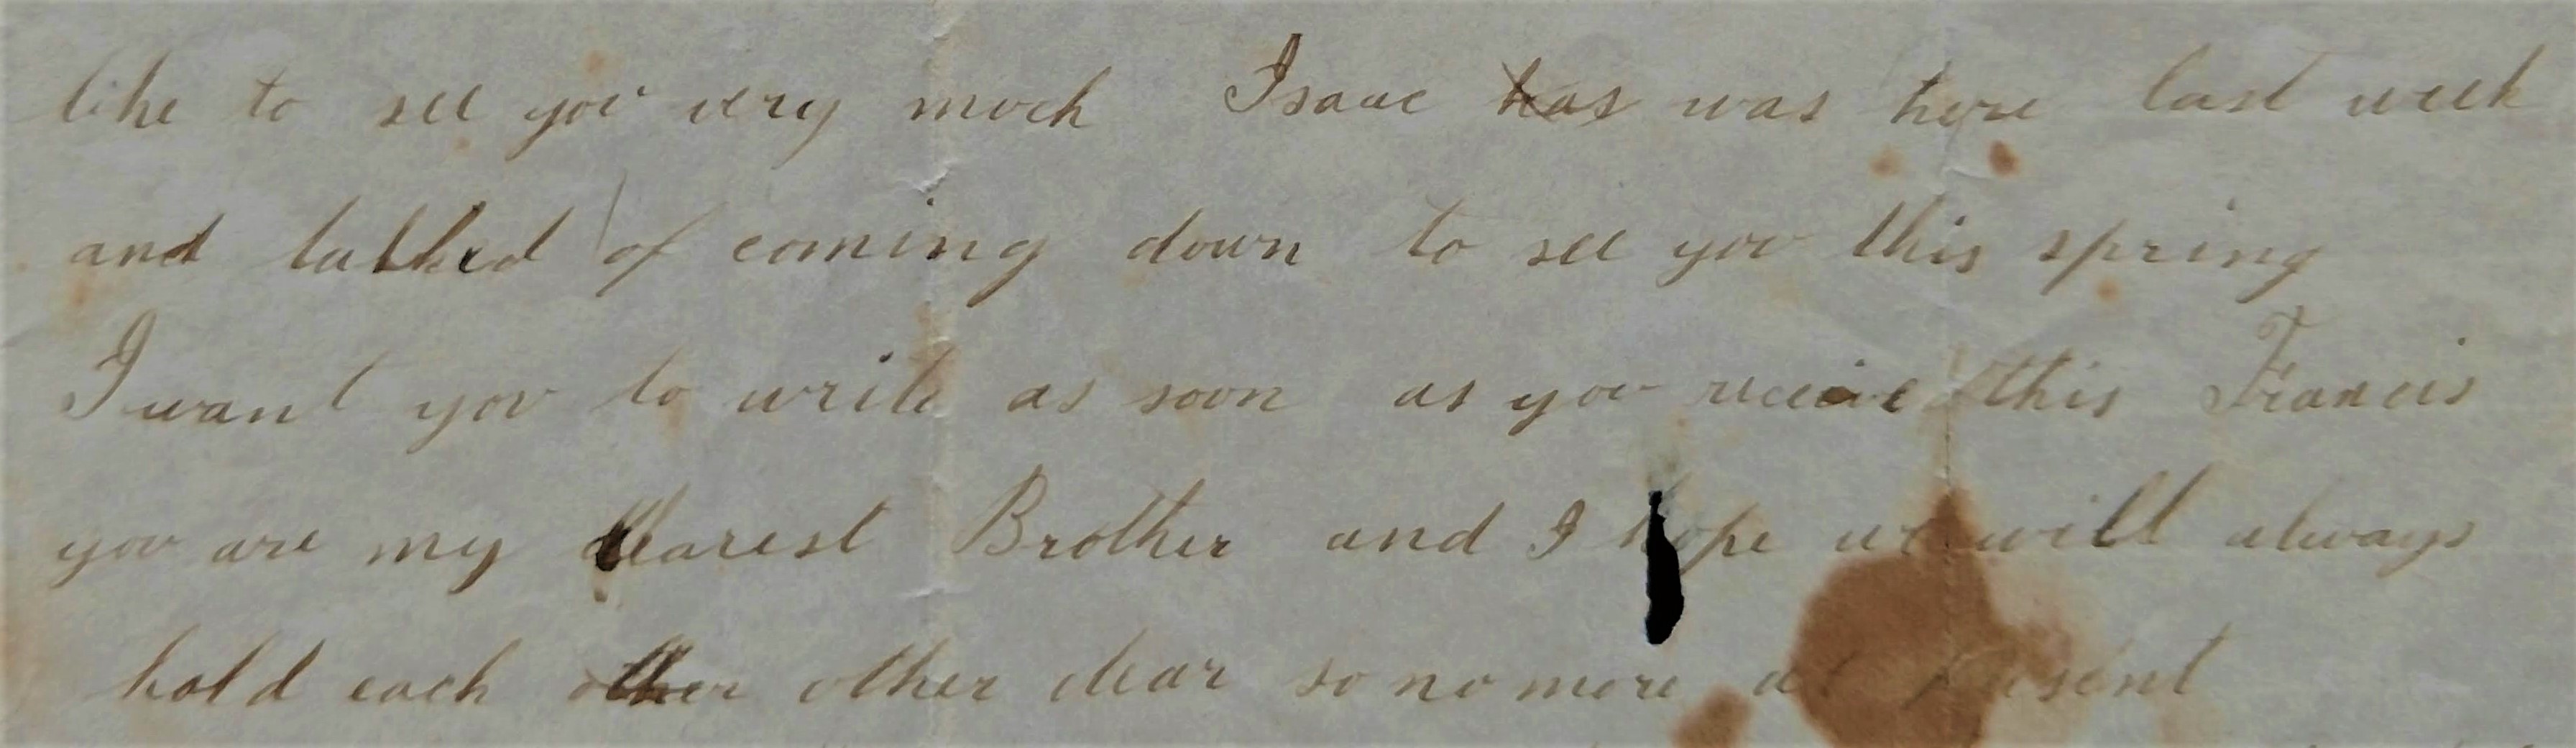 like to see you very much Isaac has was here last week
and talked of coming down to see you this spring
I want you to write as soon as you receive this Francis
you are my dearest Brother and I hope we will always
hold each other other dear so no more at present